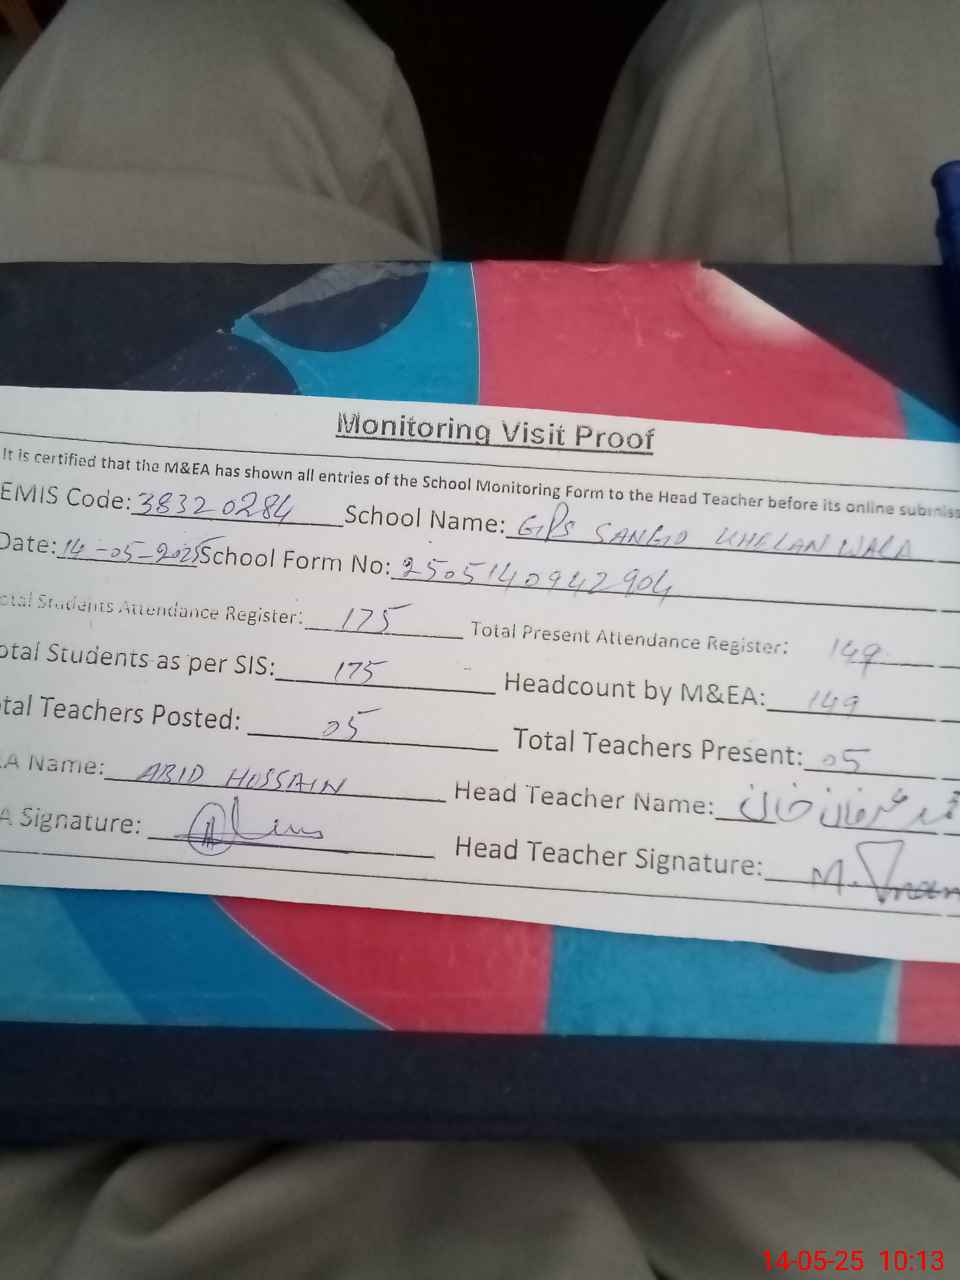 Monitoring Visit Proof
It is certified that the M&EA has shown all entries of the School Monitoring Form to the Head Teacher before its online submiss
EMIS Code: 38320284 School Name: GPS SANGO KHELAN WALA
Date: 14-05-2025 School Form No: 2505140942904
otal Students Attendance Register: 175 Total Present Attendance Register: 149
otal Students as per SIS: 175 Headcount by M&EA: 149
tal Teachers Posted: 05 Total Teachers Present: 05
A Name: ABID HUSSAIN Head Teacher Name: خان
A Signature: Head Teacher Signature: M.
14-05-25 10:13